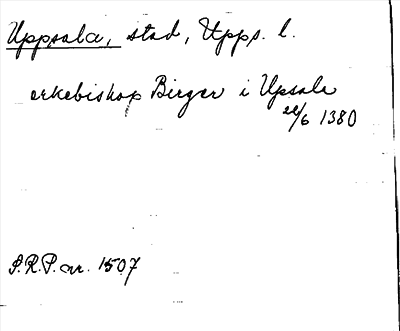 Uppsala, stad, Upps. l.
erkebiskop Birger i Upsala
22/6 1380
S.R.P. nr. 1507